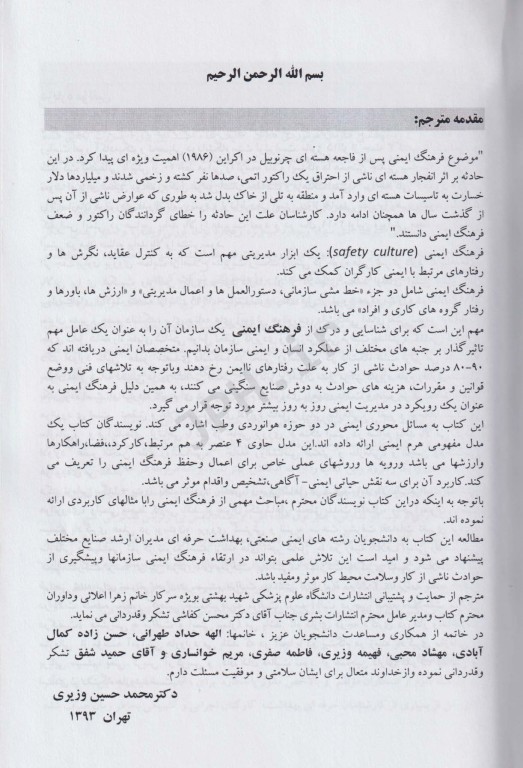 بسم الله الرحمن الرحیم
مقدمه مترجم:
"موضوع فرهنگ ایمنی پس از فاجعه هسته ای چرنوبیل در اکراین (۱۹۸۶) اهمیت ویژه ای پیدا کرد. در این
حادثه بر اثر انفجار هسته ای ناشی از احتراق یک راکتور اتمی، صدها نفر کشته و زخمی شدند و میلیاردها دلار
خسارت به تاسیسات هسته ای وارد آمد و منطقه به تلی از خاک بدل شد به طوری که عوارض ناشی از آن پس
از گذشت سال ها همچنان ادامه دارد. کارشناسان علت این حادثه را خطای گردانندگان راکتور و ضعف
فرهنگ ایمنی دانستند."
فرهنگ ایمنی (safety culture): یک ابزار مدیریتی مهم است که به کنترل عقاید، نگرش ها و
رفتارهای مرتبط با ایمنی کارگران کمک می کند.
فرهنگ ایمنی شامل دو جزء «خط مشی سازمانی، دستورالعمل ها و اعمال مدیریتی» و «ارزش ها، باورها و
رفتار گروه های کاری و افراد» می باشد.
مهم این است که برای شناسایی و درک از فرهنگ ایمنی یک سازمان آن را به عنوان یک عامل مهم
تاثیرگذار بر جنبه های مختلف از عملکرد انسان و ایمنی سازمان بدانیم. متخصصان ایمنی دریافته اند که
۸۰-۹۰ درصد حوادث ناشی از کار به علت رفتارهای ناایمن رخ دهند وباتوجه به تلاشهای فنی ووضع
قوانین و مقررات، هزینه های حوادث به دوش صنایع سنگینی می کنند، به همین دلیل فرهنگ ایمنی به
عنوان یک رویکرد در مدیریت ایمنی روز به روز بیشتر مورد توجه قرار می گیرد.
این کتاب به مسائل محوری ایمنی در دو حوزه هوانوردی وطب اشاره می کند. نویسندگان کتاب یک
مدل مفهومی هرم ایمنی ارائه داده اند.این مدل حاوی ۴ عنصر به هم مرتبط،کارکرد،،فضا،راهکارها
وارزشها می باشد ورویه ها وروشهای عملی خاص برای اعمال وحفظ فرهنگ ایمنی را تعریف می
کند.کاربرد آن برای سه نقش حیاتی ایمنی- آگاهی،تشخیص واقدام موثر می باشد.
باتوجه به اینکه دراین کتاب نویسندگان محترم ،مباحث مهمی از فرهنگ ایمنی رابا مثالهای کاربردی ارائه
نموده اند.
مطالعه این کتاب به دانشجویان رشته های ایمنی صنعتی، بهداشت حرفه ای مدیران ارشد صنایع مختلف
پیشنهاد می شود و امید است این تلاش علمی بتواند در ارتقاء فرهنگ ایمنی سازمانها وپیشگیری از
حوادث ناشی از کار وسلامت محیط کار موثر ومفید باشد.
مترجم از حمایت و پشتیبانی انتشارات دانشگاه علوم پزشکی شهید بهشتی بویژه سرکار خانم زهرا اعلائی وداوران
محترم کتاب ومدیر عامل محترم انتشارات بشری جناب آقای دکتر محسن کفاشی تشکر وقدردانی می نماید.
در خاتمه از همکاری ومساعدت دانشجویان عزیز ، خانمها: الهه حداد طهرانی، حسن زاده کمال
آبادی، مهشاد محبی، فهیمه وزیری، فاطمه صفری، مریم خوانساری و آقای حمید شفق تشکر
وقدردانی نموده وازخداوند متعال برای ایشان سلامتی و موفقیت مسئلت دارم.
دکترمحمد حسین وزیری
تهران ۱۳۹۳